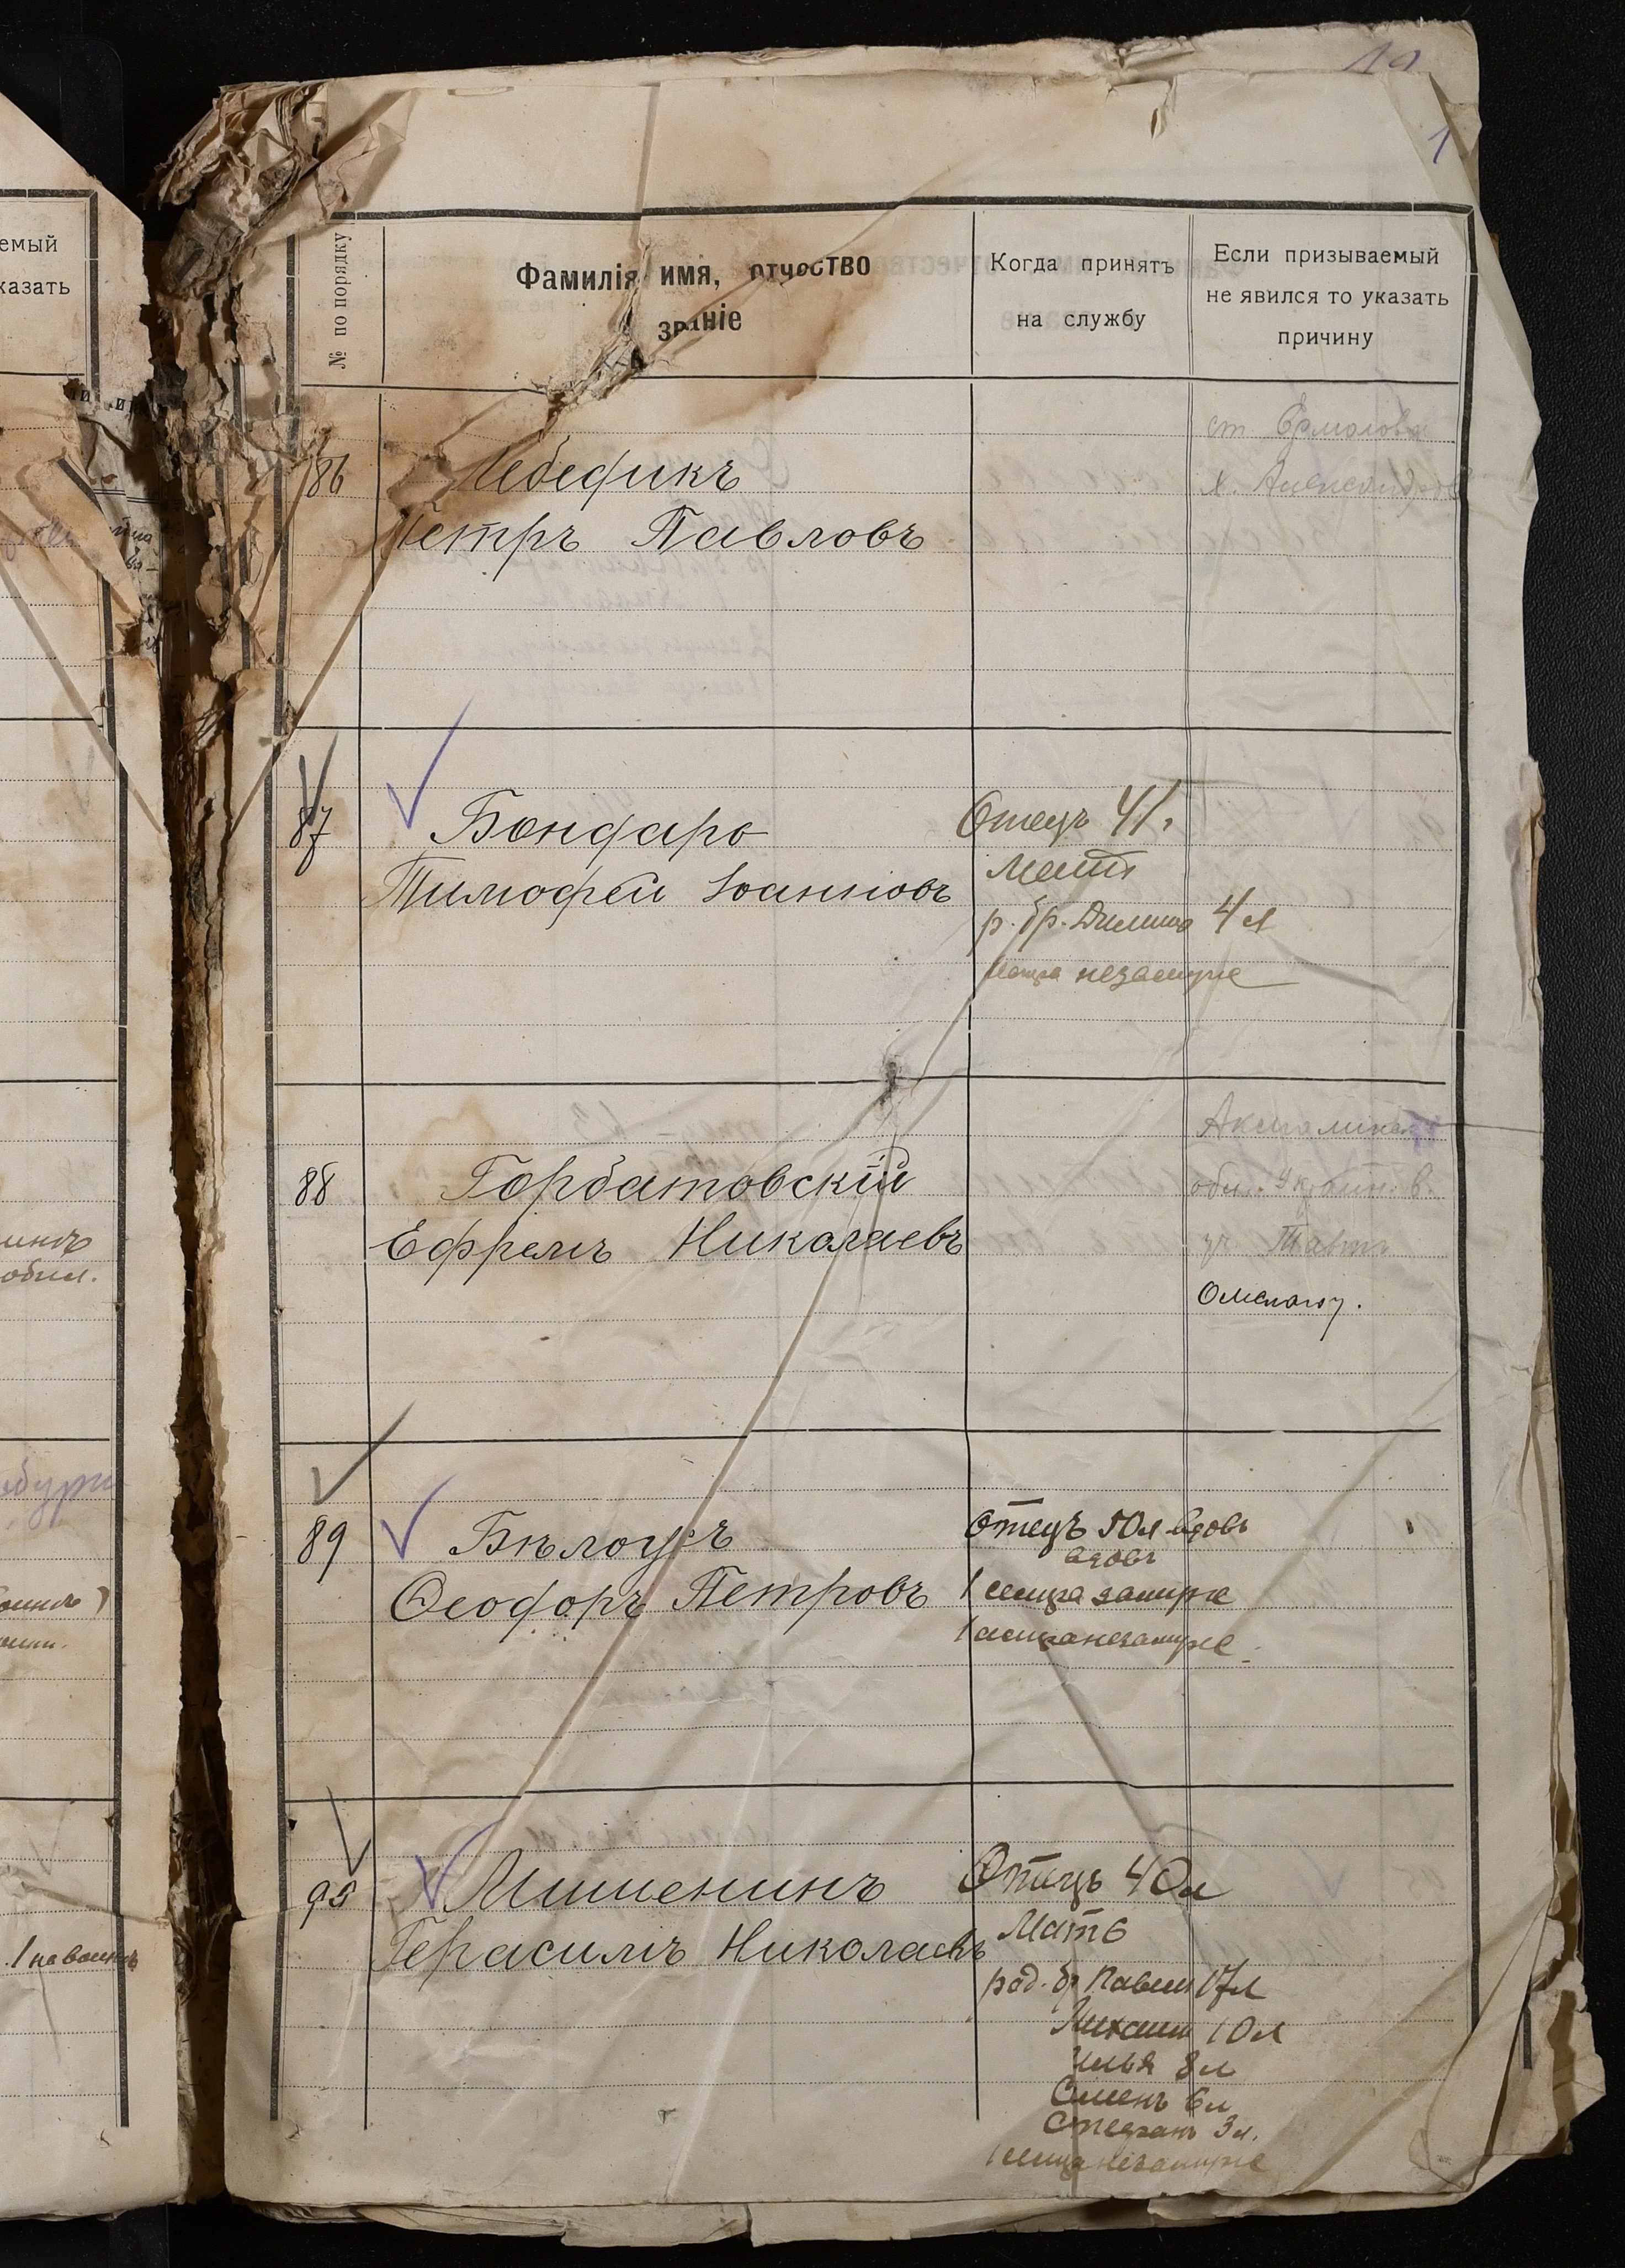 емый
казать
инъ
обил.
1 на воинъ
1
№ по порядку
Фамилія имя, отчество
званіе
Когда принятъ
на службу
Если призываемый
не явился то указать
причину
86
Лебедикъ
Петръ Павловъ
ст Ермолов
х. Александров
87
Бондарь
Тимофей Іоанновъ
Отецъ 41.
Мать
р. бр. 4 л
сестра незамуже
88
Горбатовскій
Ефремъ Николаевъ
Акмолинск
обл. Украин. в.
Омскаго у.
89
Бѣлоусъ
Ѳеодоръ Петровъ
Отецъ 50 л вдовъ
вдовъ
1 сестра замуже
1 сестра незамуже
90
Мишенинъ
Герасимъ Николаевъ
Отецъ 40 л
Мать
род. бр Павелъ 17 л
Михаилъ 10 л
Илья 8 л
Семенъ 6 л
Степанъ 3 л.
1 сестра незамуже